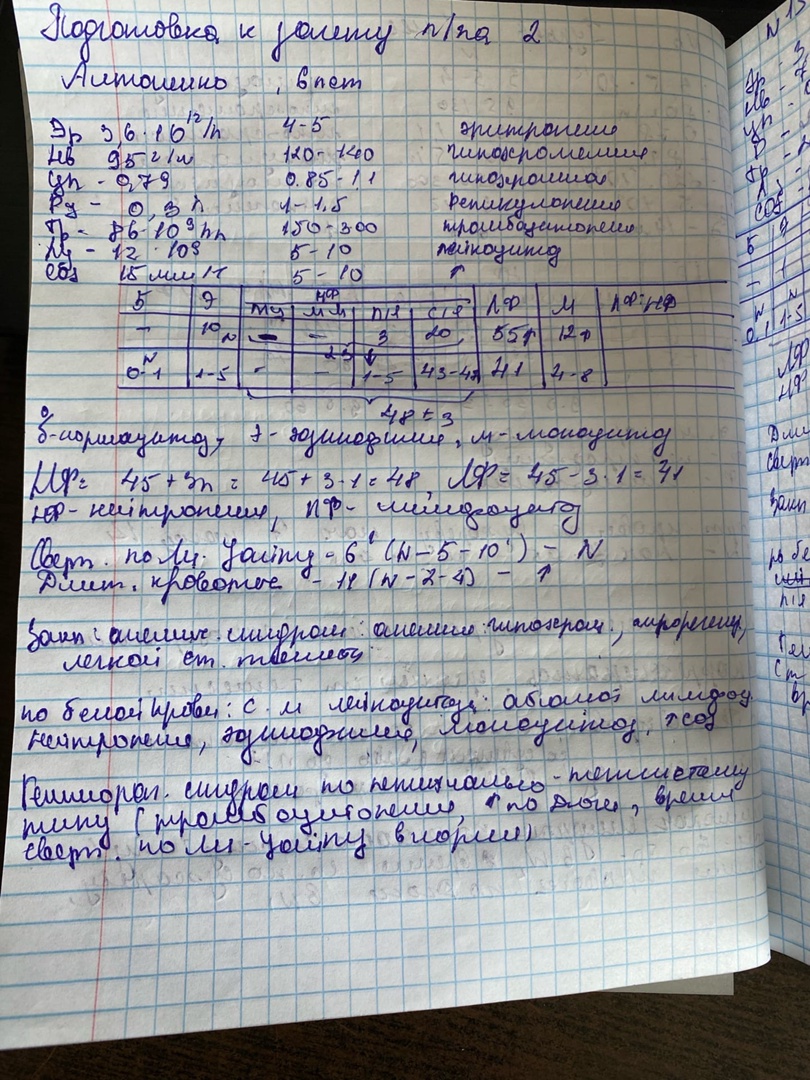 Подготовка к зачету п/гр 2
Антошенко , 8 лет
Эр 3,6·10¹²/л 4-5 эритропения
Hb 95 г/л 120-140 гипохромемия
Цп - 0,79 0.85-1,1 гипохромия
Рц - 0,3% 1-1,5 ретикулопения
Тр - 86·10⁹/л 150-300 тромбоцитопения
Лц - 12·10⁹ 5-10 лейкоцитоз
СОЭ 15 мм/ч 5-10 ↑
Б Э НФ ЛФ М ЛФ:НФ
мц м.м п/я с/я
- 10 - - 3 20 55↑ 12↑
N 23↓
0-1 1-5 - - 1-5 43-47 41 4-8
48±3
Б-нормоцитоз, Э-эозинофилия, М-моноцитоз
НФ= 45+3n = 45+3·1=48, ЛФ= 45-3·1=41
НФ-нейтропения, ЛФ-лимфоцитоз
Сверт. по Ли-Уайту - 6' (N-5-10') - N
Длит. кровотеч - 11 (N-2-4) - ↑
Закл: анемич. синдром: анемия гипохром., гипорегенер,
легкой ст. тяжести
по белой крови: с-м лейкоцитоза: абсолют лимфоц.
нейтропения, эозинофилия, моноцитоз, ↑СОЭ
Геморраг. синдром по петехиально-пятнистому
типу (тромбоцитопения, ↑ по Дюке, время
сверт. по Ли-Уайту в норме)
N 13